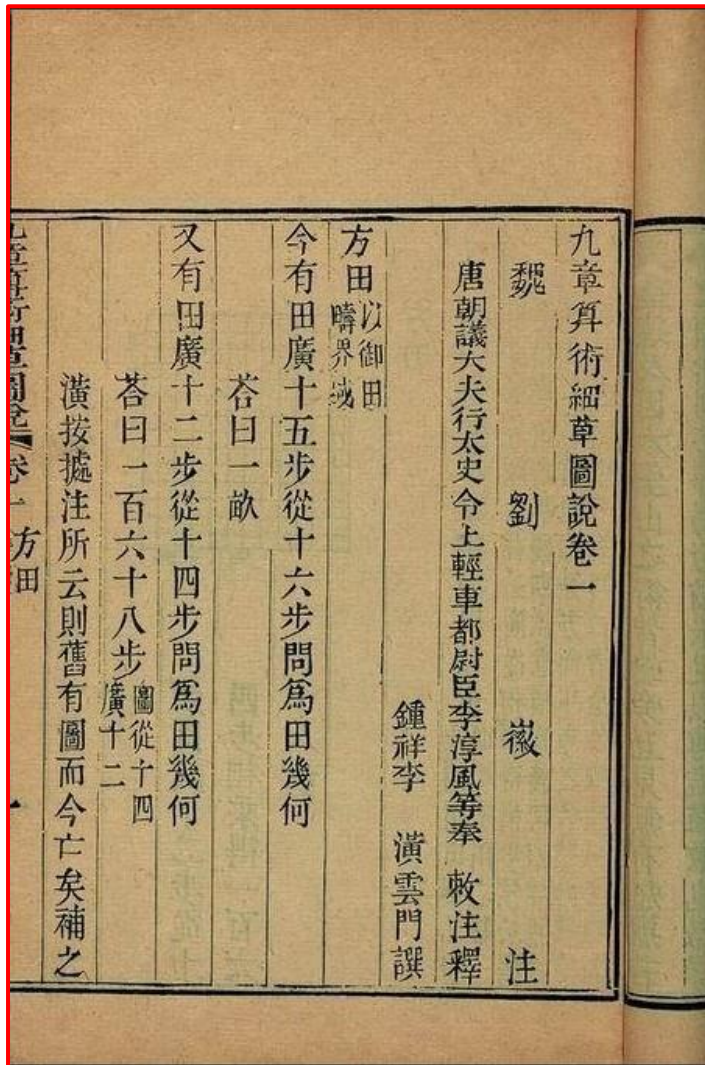 九章算術細草圖說卷一
魏 劉 徽 注
唐朝議大夫行太史令上輕車都尉臣李淳風等奉 敕注釋
鍾祥李 潢雲門譔
方田以御田疇界域
今有田廣十五步從十六步問爲田幾何
荅曰一畝
又有田廣十二步從十四步問爲田幾何
荅曰一百六十八步圖從十四廣十二
潢按㨿注所云則舊有圖而今亡矣補之
九章算術細草圖說 卷一 方田 一